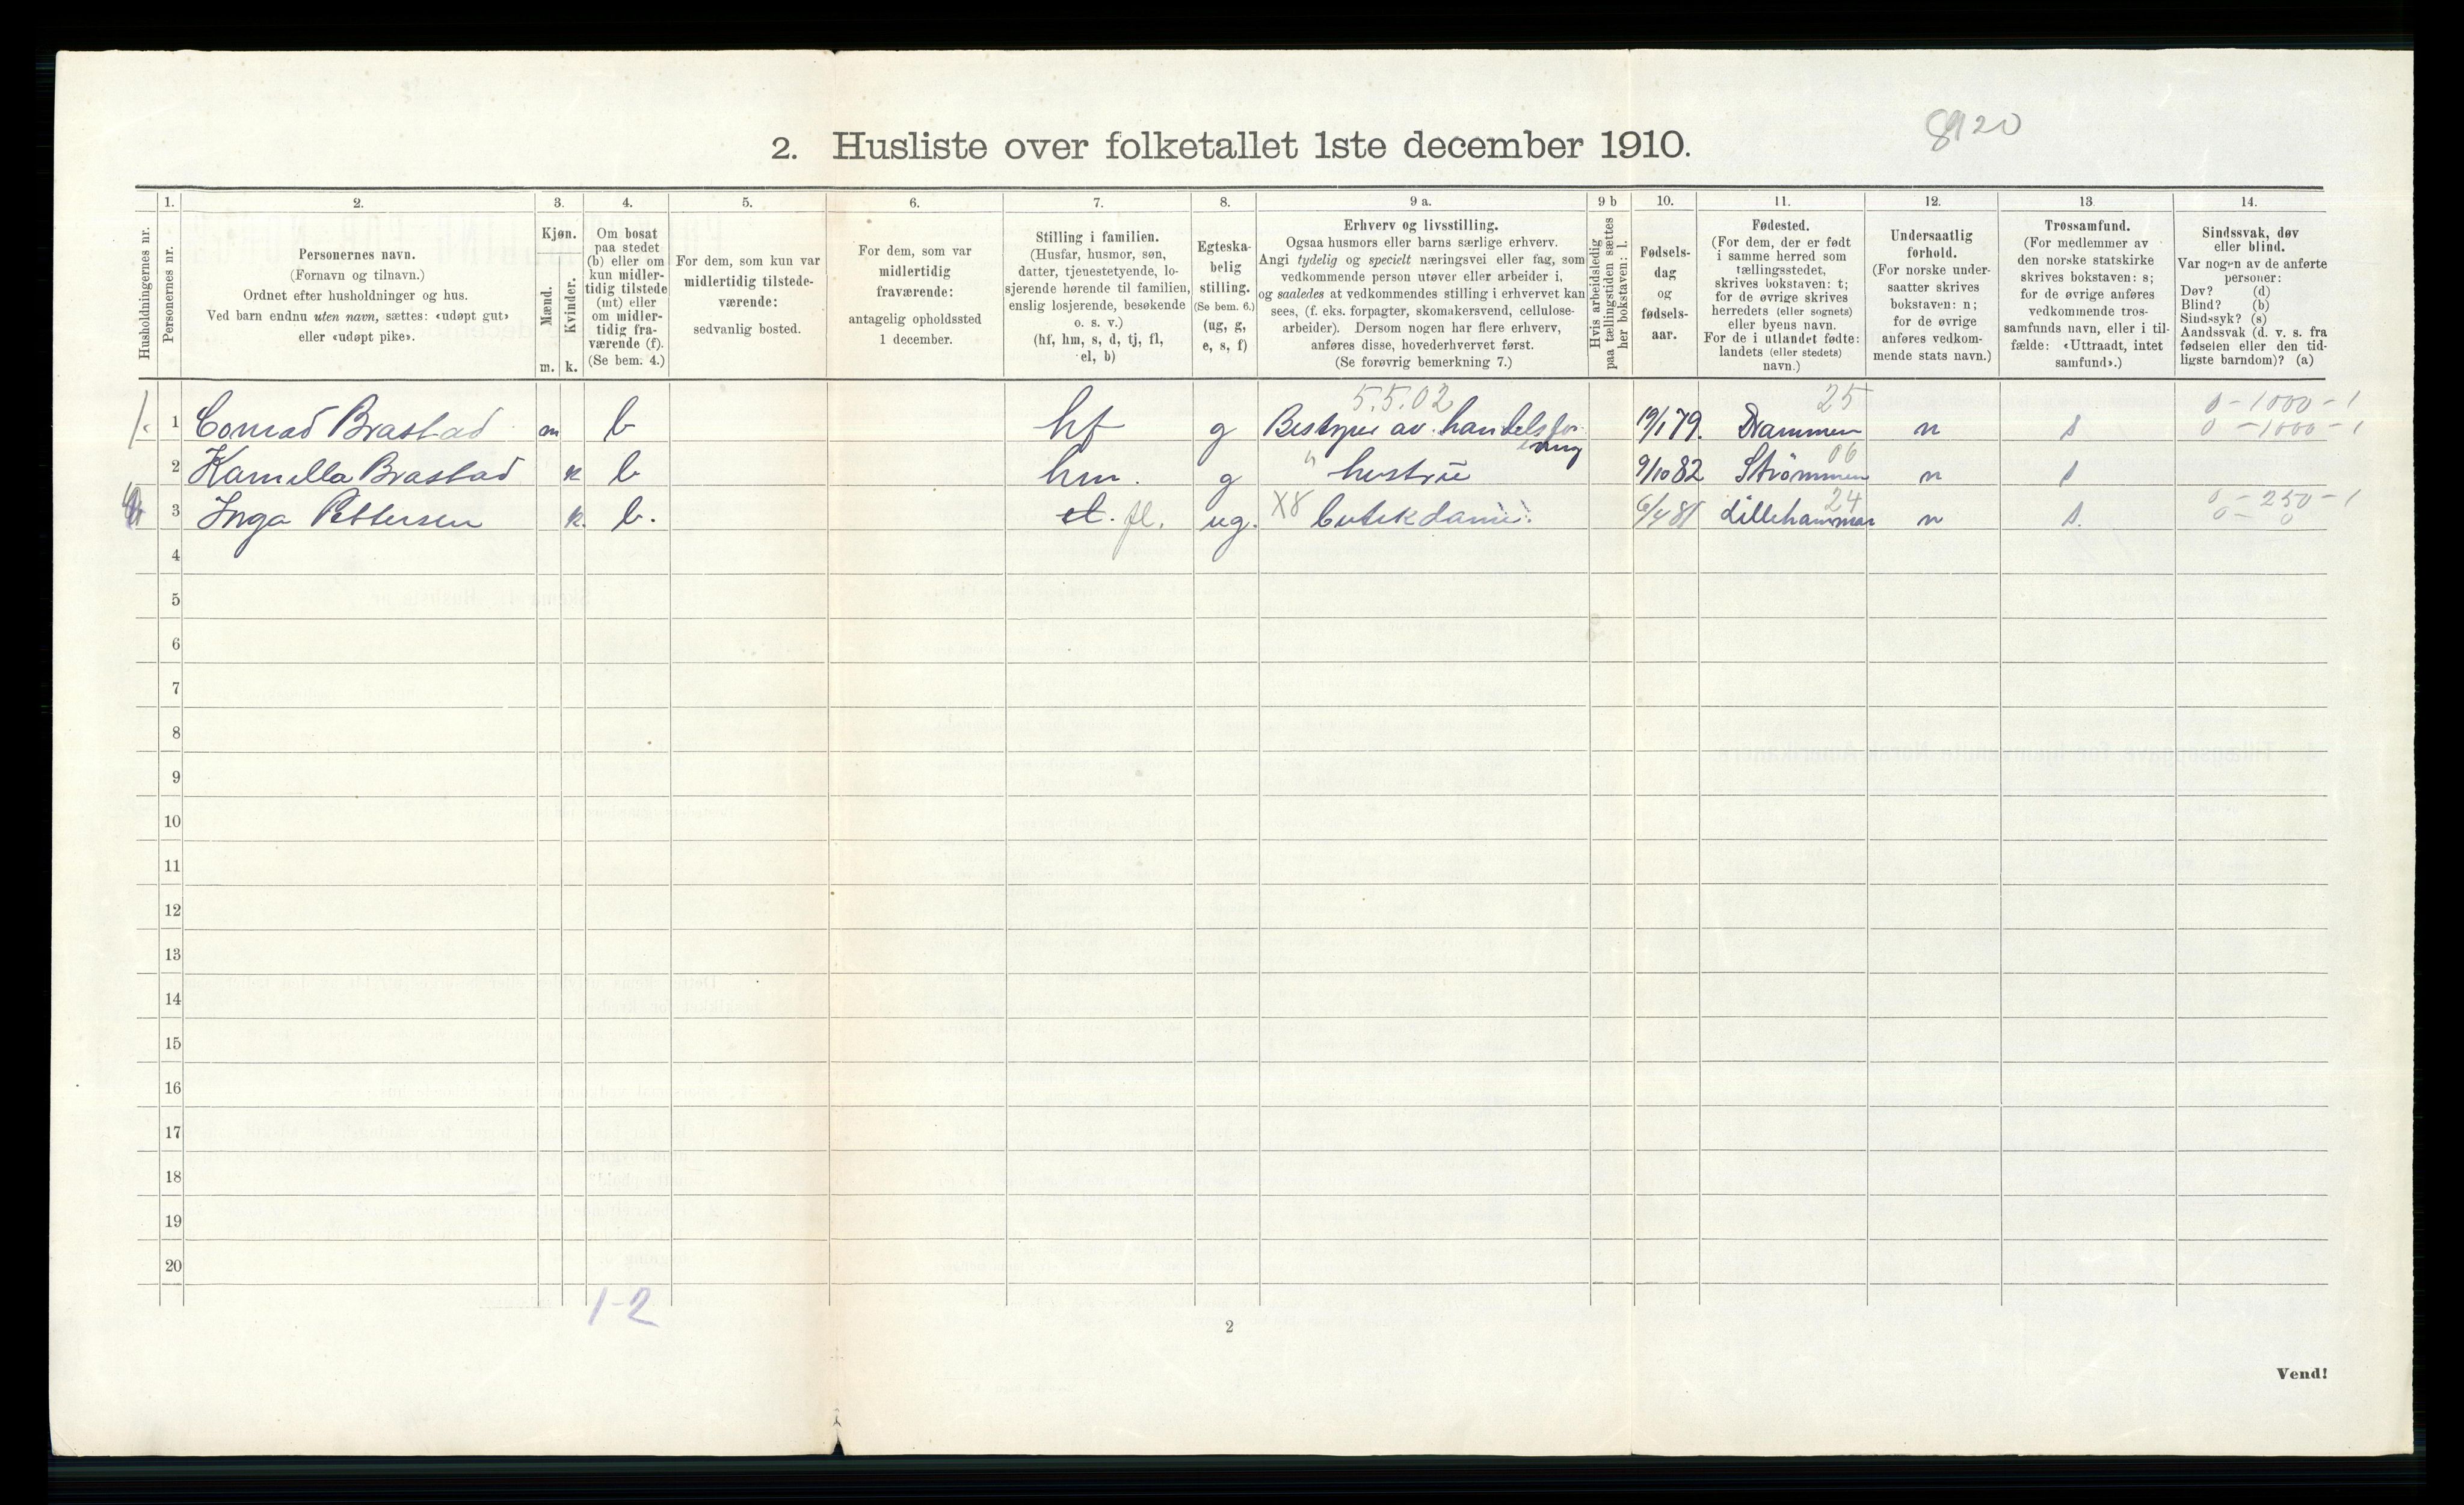 8920
2. Husliste over folketallet 1ste december 1910.
Husholdningernes nr.
1.
Personernes nr.
2.
Personernes navn.
(Fornavn og tilnavn.)
Ordnet efter husholdninger og hus.
Ved barn endnu uten navn, sættes: «udøpt gut»
eller «udøpt pike».
3.
Kjøn.
Mænd.
Kvinder.
m. k.
4.
Om bosat
paa stedet
(b) eller om
kun midler-
tidig tilstede
(mt) eller
om midler-
tidig fra-
værende (f).
(Se bem. 4.)
5.
For dem, som kun var
midlertidig tilstede-
værende:
sedvanlig bosted.
6.
For dem, som var
midlertidig
fraværende:
antagelig opholdssted
1 december.
7.
Stilling i familien.
(Husfar, husmor, søn,
datter, tjenestetyende, lo-
sjerende hørende til familien,
enslig losjerende, besøkende
o. s. v.)
(hf, hm, s, d, tj, fl,
el, b)
8.
Egteska-
belig
stilling.
(Se bem. 6.)
(ug, g,
e, s, f)
9 a.
Erhverv og livsstilling.
Ogsaa husmors eller barns særlige erhverv.
Angi tydelig og specielt næringsvei eller fag, som
vedkommende person utøver eller arbeider i,
og saaledes at vedkommendes stilling i erhvervet kan
sees, (f. eks. forpagter, skomakersvend, cellulose-
arbeider). Dersom nogen har flere erhverv,
anføres disse, hovederhvervet først.
(Se forøvrig bemerkning 7.)
9 b
Hvis arbeidsledig
paa tællingstiden sættes
her bokstaven: l.
10.
Fødsels-
dag
og
fødsels-
aar.
11.
Fødested.
(For dem, der er født
i samme herred som
tællingsstedet,
skrives bokstaven: t;
for de øvrige skrives
herredets (eller sognets)
eller byens navn.
For de i utlandet fødte:
landets (eller stedets)
navn.)
12.
Undersaatlig
forhold.
(For norske under-
saatter skrives
bokstaven: n;
for de øvrige
anføres vedkom-
mende stats navn.)
13.
Trossamfund.
(For medlemmer av
den norske statskirke
skrives bokstaven: s;
for de øvrige anføres
vedkommende tros-
samfunds navn, eller i til-
fælde: «Uttraadt, intet
samfund».)
14.
Sindssvak, døv
eller blind.
Var nogen av de anførte
personer:
Døv? (d)
Blind? (b)
Sindssyk? (s)
Aandssvak (d. v. s. fra
fødselen eller den tid-
ligste barndom)? (a)
5.5.02 25 0-1000-1
1. 1 Conrad Brastad m b hf g Bestyrer av handelsfor- 19/1 79. Drammen n s 0-1000-1
retning 06
2 Kamilla Brastad k b hm. g " hustru 9/10 82 Strømmen n s
24 0-250-1
3 Inga Pettersen k. b. el. fl. ug. X8 butikdame. 6/4 81 Lillehammer n s. 0-0
4
5
6
7
8
9
10
11
12
13
14
15
16
17
18
19
20
1-2
2
Vend!